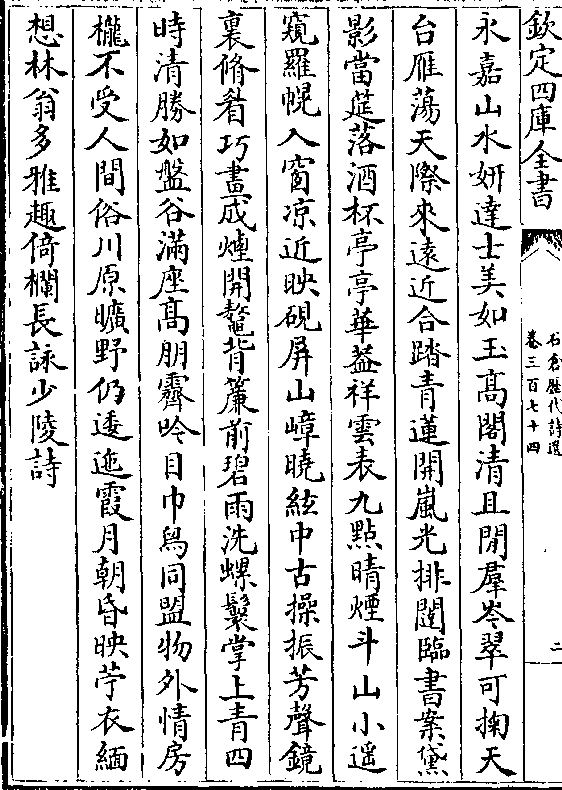 欽定四庫全書
石倉歷代詩選
卷三百七十四
二
永嘉山水妍達士美如玉高閣清且閒羣岑翠可掬天
台雁蕩天際來遠近合踏青蓮開嵐光排闥臨書案黛
影當筵落酒杯亭亭華葢祥雲表九點晴煙斗山小遥
窺羅幌入窗凉近映硯屏山嶂曉絃中古操振芳聲鏡
裏脩眉巧畫成煙開鼇背簾前碧雨洗螺鬟掌上青四
時清勝如盤谷滿座髙朋霽吟目巾舄同盟物外情房
櫳不受人間俗川原曠野仍逶迤霞月朝昏映苧衣緬
想林翁多雅趣倚欄長詠少陵詩